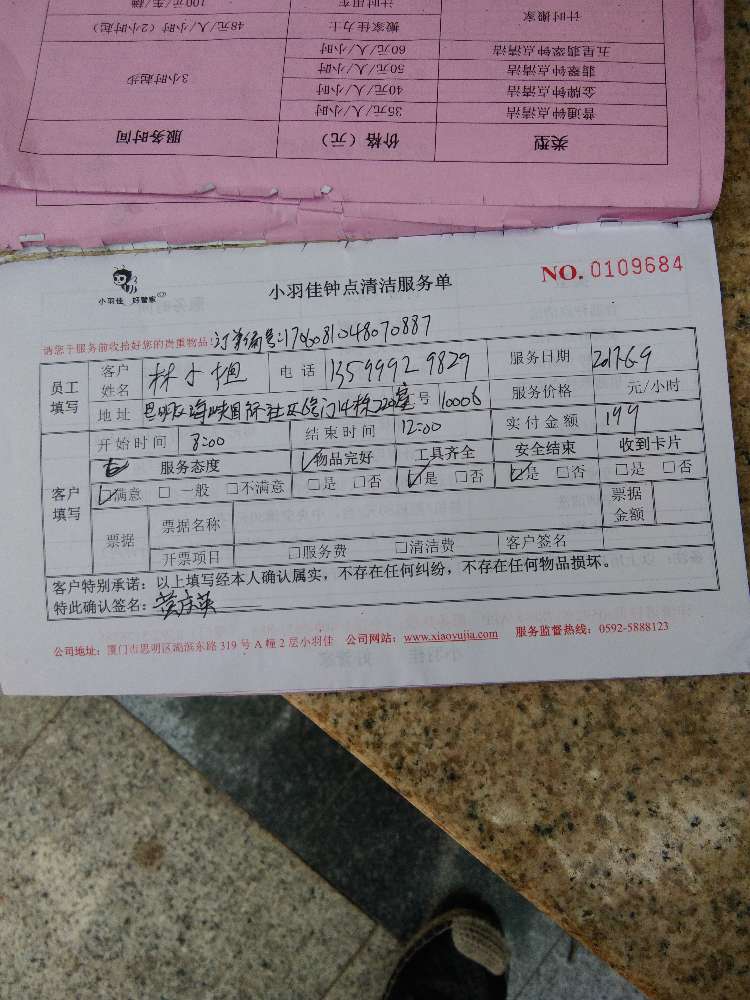 计时搬家 计时用车 100元/车/辆
搬家佳力士 48元/人/小时(2小时起)
五星翡翠钟点清洁 60元/人/小时
翡翠钟点清洁 50元/人/小时 3小时起步
金牌钟点清洁 40元/人/小时
普通钟点清洁 35元/人/小时
类型 价格(元) 服务时间
小羽佳 好管家
小羽佳钟点清洁服务单
NO. 0109684
请您于服务前收拾好您的贵重物品:订单编号:1706081048070887
员工填写 客户姓名 林小 电话 13599929829 服务日期 2017.6.9
地址 海峡国际社区 14栋220室 号 10006 服务价格 元/小时
开始时间 8:00 结束时间 12:00 实付金额 199
客户填写 服务态度 物品完好 工具齐全 安全结束 收到卡片
☑满意 □一般 □不满意 □是 □否 ☑是 □否 ☑是 □否 □是 □否
票据 票据名称 票据金额
开票项目 □服务费 □清洁费 客户签名
客户特别承诺:以上填写经本人确认属实,不存在任何纠纷,不存在任何物品损坏。
特此确认签名:
公司地址:厦门市思明区湖滨东路319号A幢2层小羽佳 公司网站:www.xiaoyujia.com 服务监督热线:0592-5888123